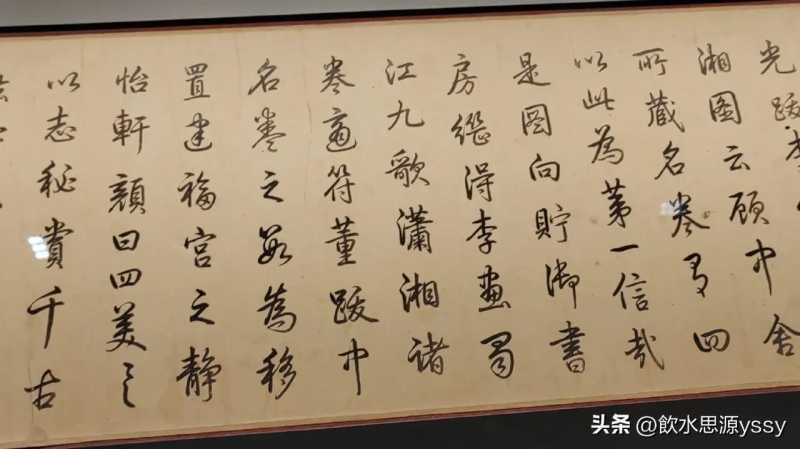 光跋李
湘圖云顧中舍
所藏名卷有四
以此為第一信哉
是圖向貯御書
房繼得李畫蜀
江九歌瀟湘諸
卷適符董跋中
名卷之數為移
置建福宮之靜
怡軒顏曰四美具
以志秘賞千古
头条 @飲水思源yssy